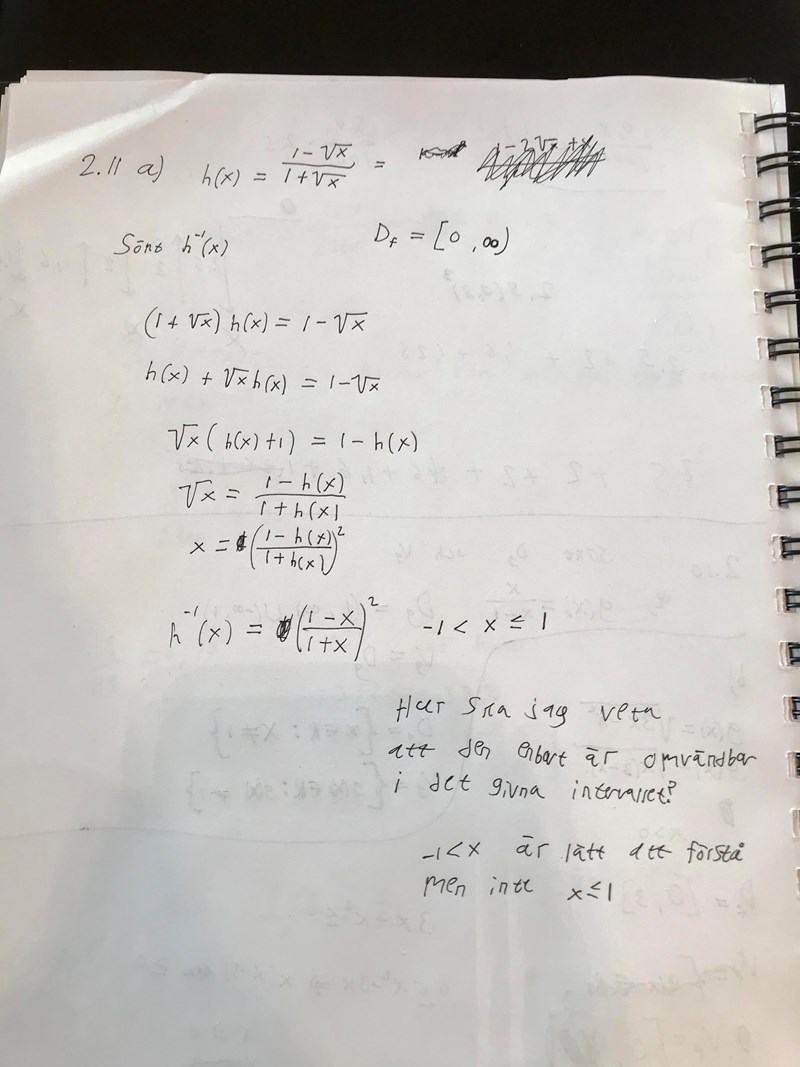 2.11 a) h(x) = \frac{1-\sqrt{x}}{1+\sqrt{x}} =
Sönt h^{-1}(x) D_f = [0, ∞)
(1 + \sqrt{x}) h(x) = 1 - \sqrt{x}
h(x) + \sqrt{x} h(x) = 1 - \sqrt{x}
\sqrt{x} (h(x) + 1) = 1 - h(x)
\sqrt{x} = \frac{1 - h(x)}{1 + h(x)}
x = \left(\frac{1 - h(x)}{1 + h(x)}\right)^2
h^{-1}(x) = \left(\frac{1 - x}{1 + x}\right)^2 -1 < x ≤ 1
Hur ska jag veta
att den enbart är omvändbar
i det givna intervallet?
-1 < x är lätt att förstå
men inte x ≤ 1